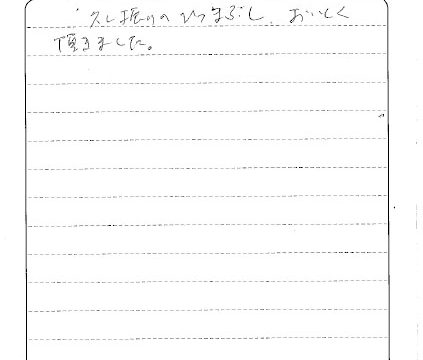 久し振りのひつまぶし、おいしく
頂きました。